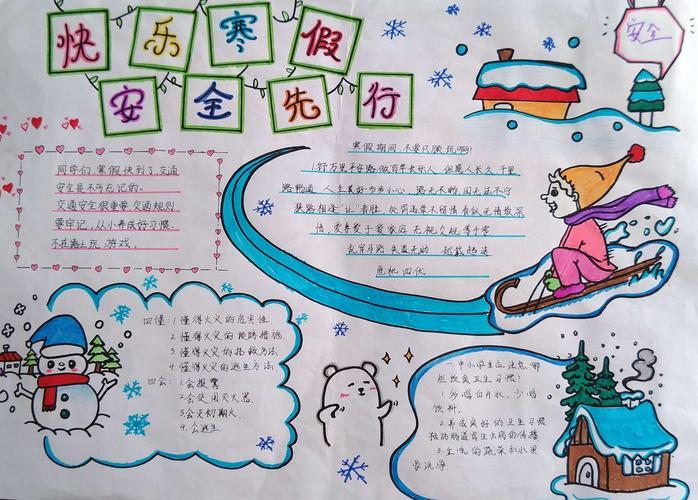 快乐寒假
安全先行
安全
同学们,寒假快到了,交通
安全是不可忘记的。
交通安全很重要,交通规则
要牢记,从小养成好习惯,
不在路上玩游戏。
寒假期间,不要只顾玩啊!
行万里平安路做百年长乐人 但愿人长久 千里
路畅通 人生美好步步小心
路相逢"让"者胜
情 爱妻爱子爱家庭 无视交规等于零
乱穿马路 失道无助 拦截超速
危机四伏
四懂:1.懂得火灾的危害性
2.懂得火灾的预防措施
3.懂得火灾的扑救方法
4.懂得火灾的逃生方法
四会:1.会报警
2.会使用灭火器
3.会灭初期火
4.会逃生
一、中小学生应注意哪
些饮食卫生习惯?
1.多喝白开水,少喝
饮料。
2.养成良好的卫生习惯
预防肠道寄生虫病的传播
3.生吃的蔬菜和水果
要洗净